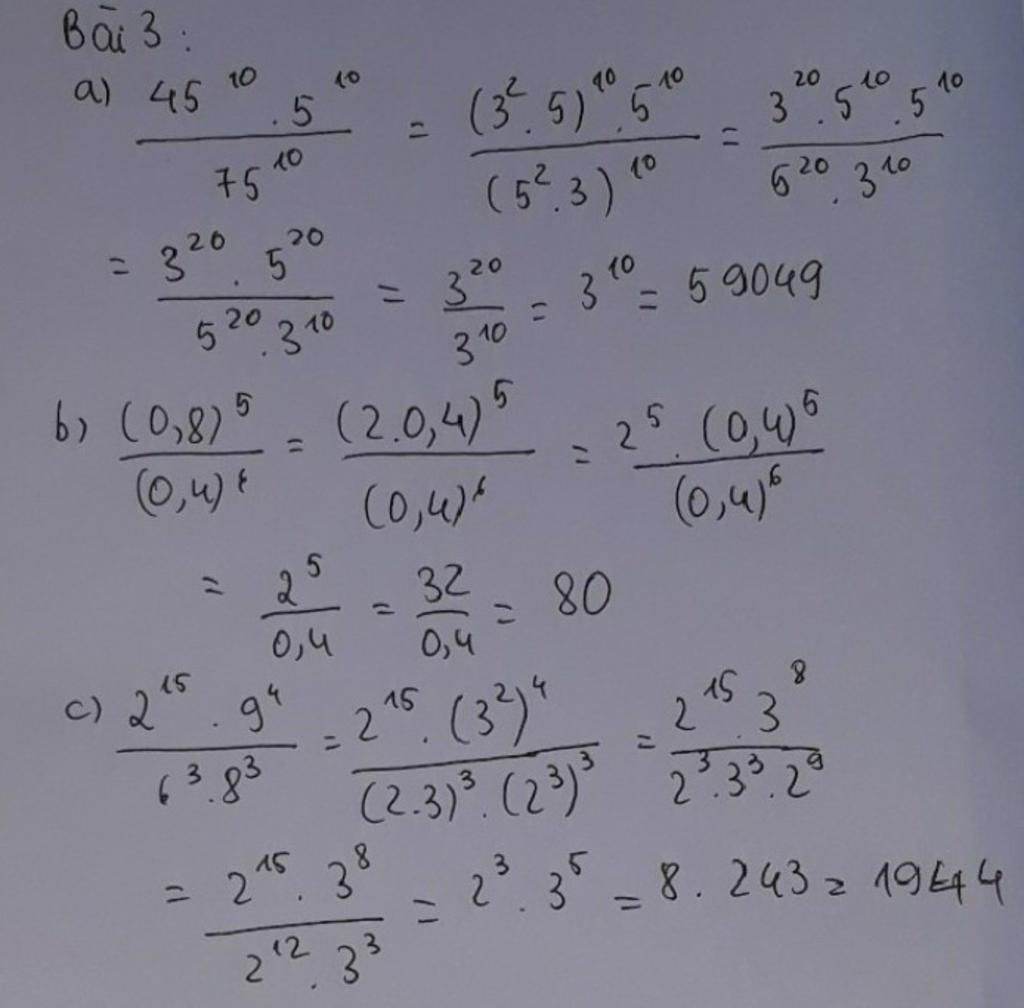 Bài 3 :
a) 45^10 . 5^10 / 75^10 = (3^2 . 5)^10 . 5^10 / (5^2 . 3)^10 = 3^20 . 5^10 . 5^10 / 5^20 . 3^10
= 3^20 . 5^20 / 5^20 . 3^10 = 3^20 / 3^10 = 3^10 = 59049
b) (0,8)^5 / (0,4)^6 = (2.0,4)^5 / (0,4)^6 = 2^5 . (0,4)^5 / (0,4)^6
= 2^5 / 0,4 = 32 / 0,4 = 80
c) 2^15 . 9^4 / 6^3 . 8^3 = 2^15 . (3^2)^4 / (2.3)^3 . (2^3)^3 = 2^15 . 3^8 / 2^3 . 3^3 . 2^9
= 2^15 . 3^8 / 2^12 . 3^3 = 2^3 . 3^5 = 8 . 243 = 1944